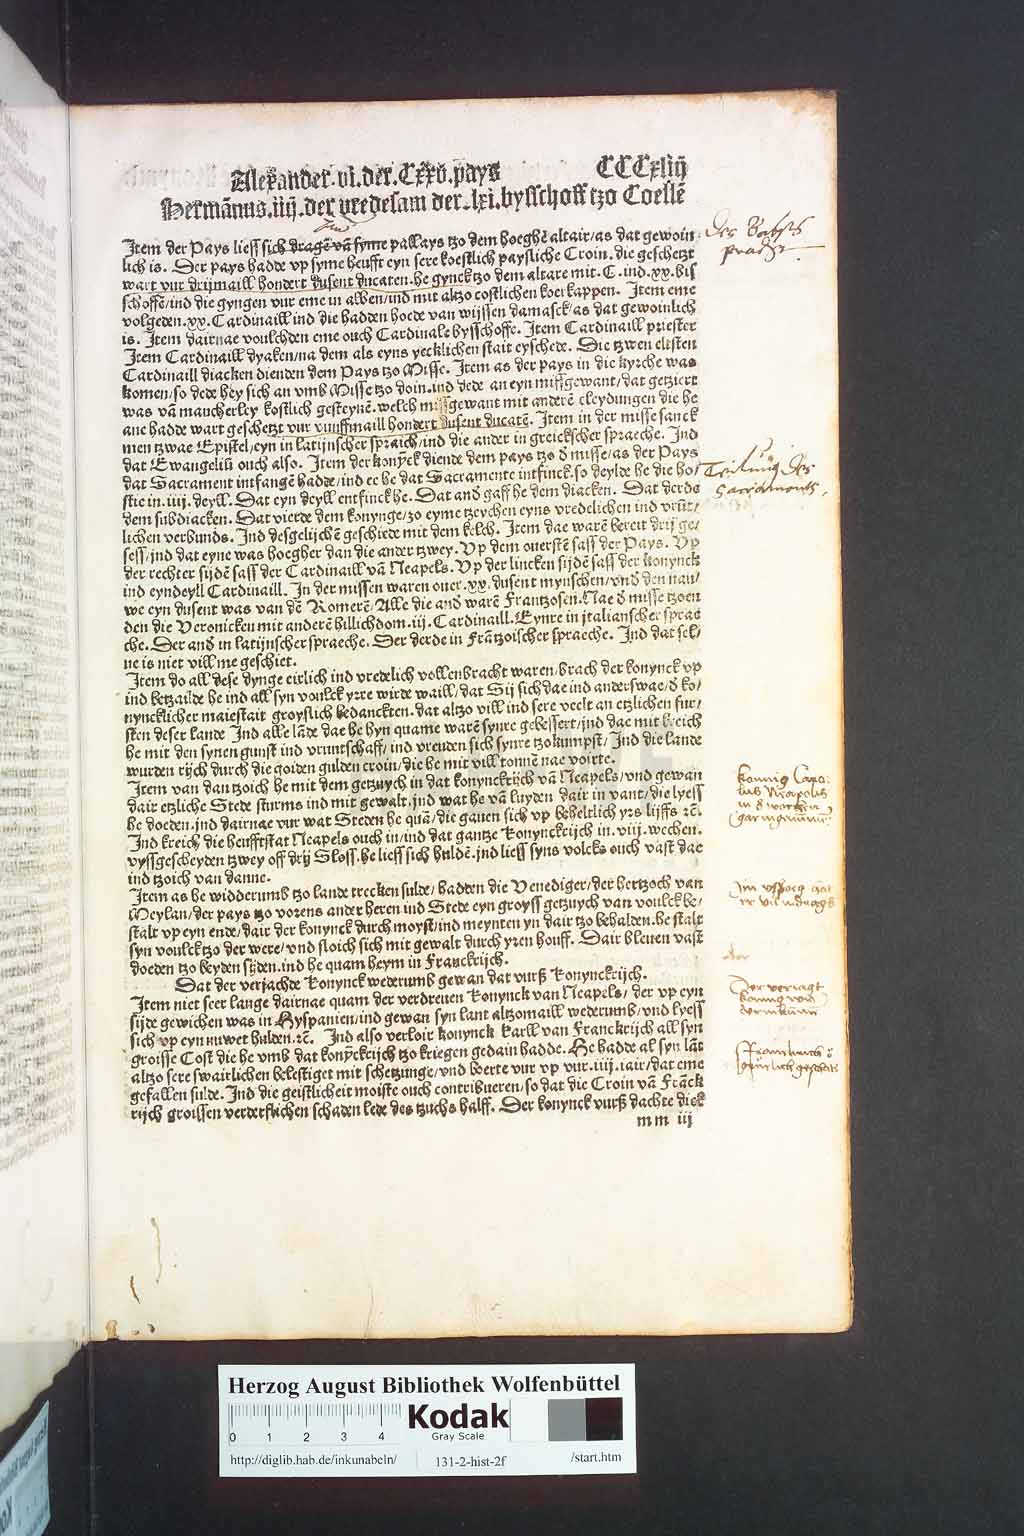 Alexander. vi. der. Cxxv. pays CCCxliij
Hermānus. iiij. der vredesam der. lxi. bysschoff tzo Coellē
Item der Pays lieſſ ſich dragē vā ſyme pallays tzo dem hoeghē altair/as dat gewoin
lich is. Der pays hadde vp ſyme heufft eyn ſere koeſtlich paysliche Croin. die geſchetzt
wart vur drijmaill hondert duſent ducaten. he gynck tzo dem altare mit. C. ind. xx. biſ
ſchoffē/ind die gyngen vur eme in alben/ind mit altzo coſtlichen koerkappen. Item eme
volgeden. xx. Cardinaill ind die hadden hoede van wijſſen damaſck/as dat gewoinlich
is. Item dairnae voulchden eme ouch Cardinale bysſchoffe. Item Cardinaill prieſter
Item Cardinaill dyaken/na dem als eyns yecklichen ſtait eyſchede. Die tzwen elſten
Cardinaill diacken dienden dem Pays tzo Miſſe. Item as der pays in die kyrche was
komen/ſo dede hey ſich an vmb Miſſe tzo doin. ind dede an eyn miſſgewant/dat getziert
was vā mancherley koſtlich geſteynē. welch miſſgewant mit anderē cleydungen die he
ane hadde wart geſchetzt vur vunffmaill hondert duſent ducatē. Item in der miſſe ſanck
men tzwae Epiſtel/eyn in latijnſcher ſpraich/ind die ander in greickſcher ſpraeche. Ind
dat Ewangeliū ouch alſo. Item der konyck diende dem pays tzo d̕ miſſe/as der Pays
dat Sacrament intfangē hadde/ind ee he dat Sacramente intfinck. ſo deylde he die ho/
ſtie in. iiij. deyll. Dat eyn deyll entfinck he. Dat and̕ gaff he dem diacken. Dat derde
dem ſubdiacken. Dat vierde dem konynge/zo eyme tzeychen eyns vredelichen ind vrūt/
lichen verbunds. Ind desgelijchē geſchiede mit dem kelch. Item dae warē bereit drij ge/
ſeſſ/ind dat eyne was hoegher dan die ander tzwey. Vp dem ouerſtē ſaſſ der Pays. Vp
der rechter ſijdē ſaſſ der Cardinaill vā Neapels. Vp der lincken ſijdē ſaſſ der konynck
ind eyndeyll Cardinaill. In der miſſen waren ouer. xx. duſent mynſchen/vnd den nau/
we eyn duſent was van dē Romerē/Alle die and̕ warē Frantzoſen. Nae d̕ miſſe tzoen
den die Veronicken mit anderē hillichdom. iij. Cardinaill. Eynre in jtalianſcher ſprae
che. Der and̕ in latijnſcher ſpraeche. Der derde in Frātzoiſcher ſpraeche. Ind dat ſel/
ue is niet vill me geſchiet.
Item do all deſe dynge eirlich ind vredelich vollenbracht waren/brach der konynck vp
ind betzailde he ind all ſyn voulck yrre wirde waill/dat Sij ſich dae ind anderswae/d̕ ko/
nyncklicher maieſtait groyſlich bedanckten. dat altzo vill ind ſere veelt an etzlichen fur/
ſten deſer lande Ind alle lāde dae he hyn quame warē ſynre gebeſſert/ind dae mit kreich
he mit den ſynen gunſt ind vruntſchaff/ind vreuden ſich ſynre tzokumpſt/Ind die lande
wurden rijch durch die goiden gulden croin/die he mit vill tonnē nae voirte.
Item van dan tzoich he mit dem getzuych in dat konynckrijch vā Neapels/vnd gewan
dair etzliche Stede ſturms ind mit gewalt. ind wat he vā luyden dair in vant/die lyeſſ
he doeden. ind dairnae vur wat Steden he quā/die gauen ſich vp beheltlich yrs lijffs ꝛc̄.
Ind kreich die heufftſtat Neapels ouch in/ind dat gantze konynckrijch in. viij. wechen.
vyſſgeſcheyden tzwey off drij Sloſſ. he lieſſ ſich huldē. ind lieſſ ſyns volcks ouch vaſt dae
ind tzoich van danne.
Item as he widderumb tzo lande trecken ſulde/hadden die Venediger/der hertzoch van
Meylan/der pays tzo vorens ander heren ind Stede eyn groyſſ getzuych van voulck be/
ſtalt vp eyn ende/dair der konynck durch moyſt/ind meynten yn dair tzo behalden. he ſtalt
ſyn voulck tzo der were/vnd ſloich ſich mit gewalt durch yren houff. Dair bleuen vaſt
doeden tzo beyden ſijden. ind he quam heym in Franckrijch.
Dat der verjachde konynck wederumb gewan dat vurß konynckrijch.
Item niet ſeer lange dairnae quam der verdreuen konynck van Neapels/der vp eyn
ſijde gewichen was in Hyſpanien/ind gewan ſyn lant altzomaill wederumb/vnd lyeſſ
ſich vp eyn nuwet hulden. ꝛc̄. Ind alſo verloir konynck karll van Franckrijch all ſyn
groiſſe Coſt die he vmb dat konyckrijch tzo kriegen gedain hadde. He hadde al ſyn lāt
altzo ſere ſwairlichen beleſtiget mit ſchetzunge/vnd boerte vur vp vur. iiij. iair/dat eme
gefallen ſulde. Ind die geiſtlicheit moiſte ouch contribueren/ſo dat die Croin vā Frāck
rijch groiſſen verderfflichen ſchaden lede des tzuchs halff. Der konynck vurß dachte dick
mm iij
des Babſts
pracht.
Teilung des
Sacraments.
konnig Caro:
lus Neapolis
in 8 wochen
gar ingenūmē.
Der verjagt
konnig
Franckreich
Herzog August Bibliothek Wolfenbüttel
0 1 2 3 4
Kodak
Gray Scale
http://diglib.hab.de/inkunabeln/ 131-2-hist-2f /start.htm